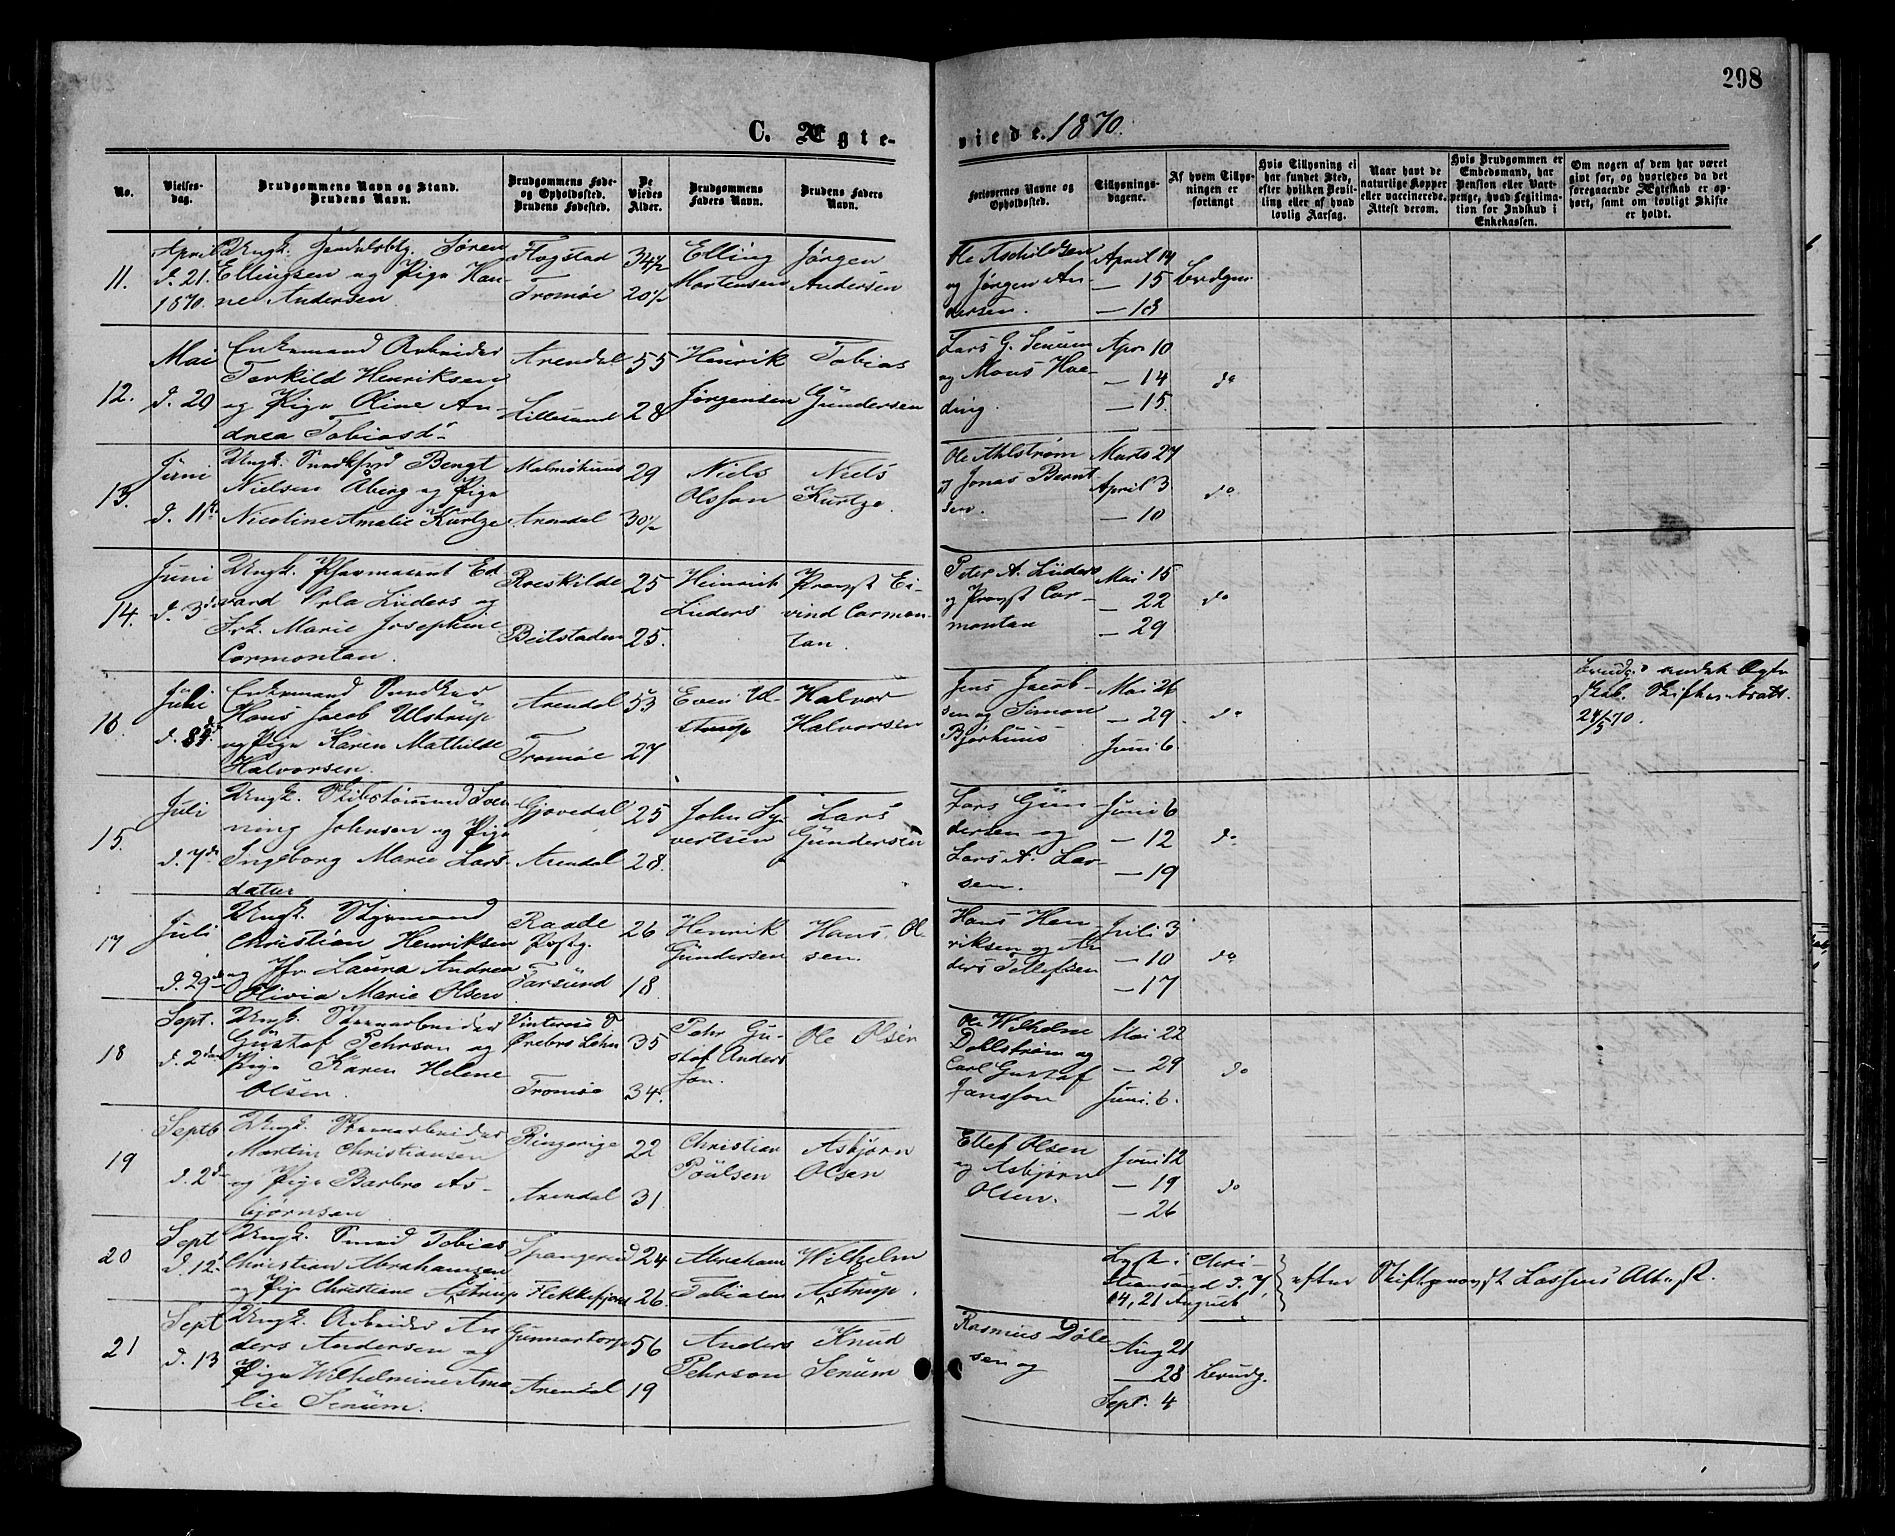 298
C. Ægte-
viede. 1870.
No.
Vielses-
dag.
Brudgommens Navn og Stand.
Brudens Navn.
Brudgommens Føde-
og Opholdssted.
Brudens Fødested.
De
Viedes
Alder.
Brudgommens
Faders Navn.
Brudens Faders
Navn.
Forlovernes Navne og
Opholdssted.
Tillysnings-
dagene.
Af hvem Tillys-
ningen er
forlangt
Hvis Tillysning ei
har fundet Sted,
efter hvilken Bevil-
ling eller af hvad
lovlig Aarsag.
Naar havt de
naturlige Kopper
eller vaccinerede.
Attest derom.
Hvis Brudgommen er
Embedsmand, har
Pension eller Vart-
penge, hvad Legitima-
tion for Indskud i
Enkekassen.
Om nogen af dem har været
gift før, og hvorledes da det
foregaaende Ægteskab er op-
hørt, samt om lovligt Skifte
er holdt.
11.
April
d. 21.
1870.
Ungk. Søren
Ellingsen og Pige Han-
ne Andersen
Flogstad
Tromøe
34½
20½
Elling
Mortensen
Jørgen
Andersen
Ole Aschildsen
og Jørgen An
dersen.
April 14
— 15
— 18
Brudgm
12.
Mai
d. 20
Enkemand Arbeider
Terkild Henriksen
og Pige Oline An-
drea Tobiasd.
Arendal
Lillesand
55
28
Henrik
Jørgensen
Tobias
Gundersen
Lars G. Senum
og Mons Hoe-
ding.
Apr 10
— 14
— 15.
do
13.
Juni
d. 11
Ungk. Bengt
Nielsen Åberg og Pige
Nicoline Amalie Kurtze
Malmøhuus
Arendal
29
30½
Niels
Olsson
Niels
Kurtze.
Ole Ahlstrøm
og Jonas Bernt
sen.
Marts 27
April 3
— 10
do
14.
Juni
d. 3
Ungk. Pharmaceut Ed
vard Orla Lüders og
Frk. Marie Josephine
Cormontan.
Roeskilde
Beitstaden
25
25.
Heinrich
Lüders
Provst Ei-
vind Cormon-
tan.
Peter A. Lüders
og Provst Cor-
montan
Mai 15
— 22
— 29
do
16.
Juli
d. 8
Enkemand Snedker
Hans Jacob Ulstrup
og Pige Karen Mathilde
Halvorsen.
Arendal
Tromøe
53
27
Even Ul-
strup
Halvor
Halvorsen
Jens Jacob-
sen og Simon
Bjørhuus
Mai 26
— 29.
Juni 6.
do
Brudg. andet Ægte
skab. Skifteattest.
24/5 70.
15.
Juli
d. 7
Ungk. Skibstømmermd Sven-
ning Johnsen og Pige
Ingeborg Marie Lars-
datter
Gjøvedal
Arendal
25
28.
John Sy-
vertsen
Lars
Gundersen
Lars Gun-
dersen og
Lars A. Lar-
sen.
Juni 6
— 12
— 19
do
17
Juli
d. 29
Ungk. Styrmand
Christian Henriksen
og Jfr Laura Andrea
Olivia Marie Olsen
Raade
Prstg.
Farsund
26
18.
Henrik
Gundersen
Hans Ol-
sen.
Hans Hen
riksen og An
ders Tellefsen
Juli 3
— 10
— 17
do
18
Sept.
d. 2
Ungk. Jernarbeider
Gustaf Pehrson og
Pige Karen Helene
Olsen.
Ørebro Lehn
Tromøe
35
34.
Pehr Gu-
staf Anders
son.
Ole Olsen
Ole Wilhelm
Dallstrøm og
Carl Gustaf
Jansson
Mai 22
— 29
Juni. 6.
do
19
Septb
d. 2
Ungk. Jernarbeider
Martin Christiansen
og Pige Barbro As-
bjørnsen
Ringerige
Arendal
22
31
Christian
Poulsen
Asbjørn
Olsen
Ellef Olsen
og Asbjørn
Olsen.
Juni 12
— 19
— 26
do
20
Sept
d. 12
Ungk. Smed Tobias
Christian Abrahamsen
og Pige Christiane Astrup
Spangereid
Flekkefjord
24
26.
Abraham
Tobiasen
Wilhelm
Astrup.
Lyst i Chri-
stiansand d. 7,
14, 21 August
efter Stiftsprovst Lassens Attest.
21
Sept
d. 13
Ungk. Arbeider An
ders Andersen og
Pige Wilhelmine Ama
lie Senum.
Gunnartorp
Arendal
56
19
Anders
Pehrson
Knud
Senum
Rasmus Døle
sen og
Aug 21
— 28
Sept. 4
Brudg.